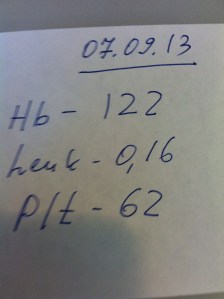 07.09.13
Hb - 122
Leuk - 0,16
Plt - 62